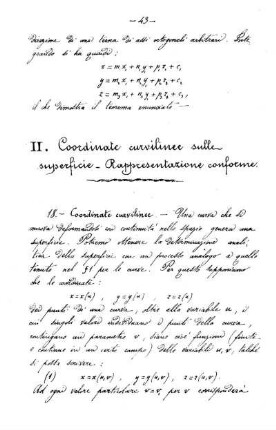 — 43 —
direzione di una terna di assi ortogonali arbitrari. Integrando si ha quindi:
x = m x₁ + n y + p z₁ + c,
y = m₁ x₁ + n₁ y + p₁ z₁ + c₁
z = m₂ x₁ + n₂ y + p₂ z₁ + c₂,
il che dimostra il teorema enunciato —
II. Coordinate curvilinee sulle
superficie – Rappresentazione conforme.
18. – Coordinate curvilinee. – Una curva che si
muova deformandosi con continuità nello spazio genera una
superficie. Potremo ottenere la determinazione anali-
tica della superficie con un processo analogo a quello
tenuto nel §1 per le curve. Per questo supponiamo
che le coordinate:
x = x(u) , y = y(u) , z = z(u)
dei punti di una curva, oltre alla variabile u, i
cui singoli valori individuano i punti della curva,
contengano un parametro v, siano cioè funzioni (finite
e continue in un certo campo) delle variabili u, v, talchè
si potrà scrivere:
(1) x = x(u,v) , y = y(u,v) , z = z(u,v)
Ad ogni valore particolare v = v₁ per v corrisponderà